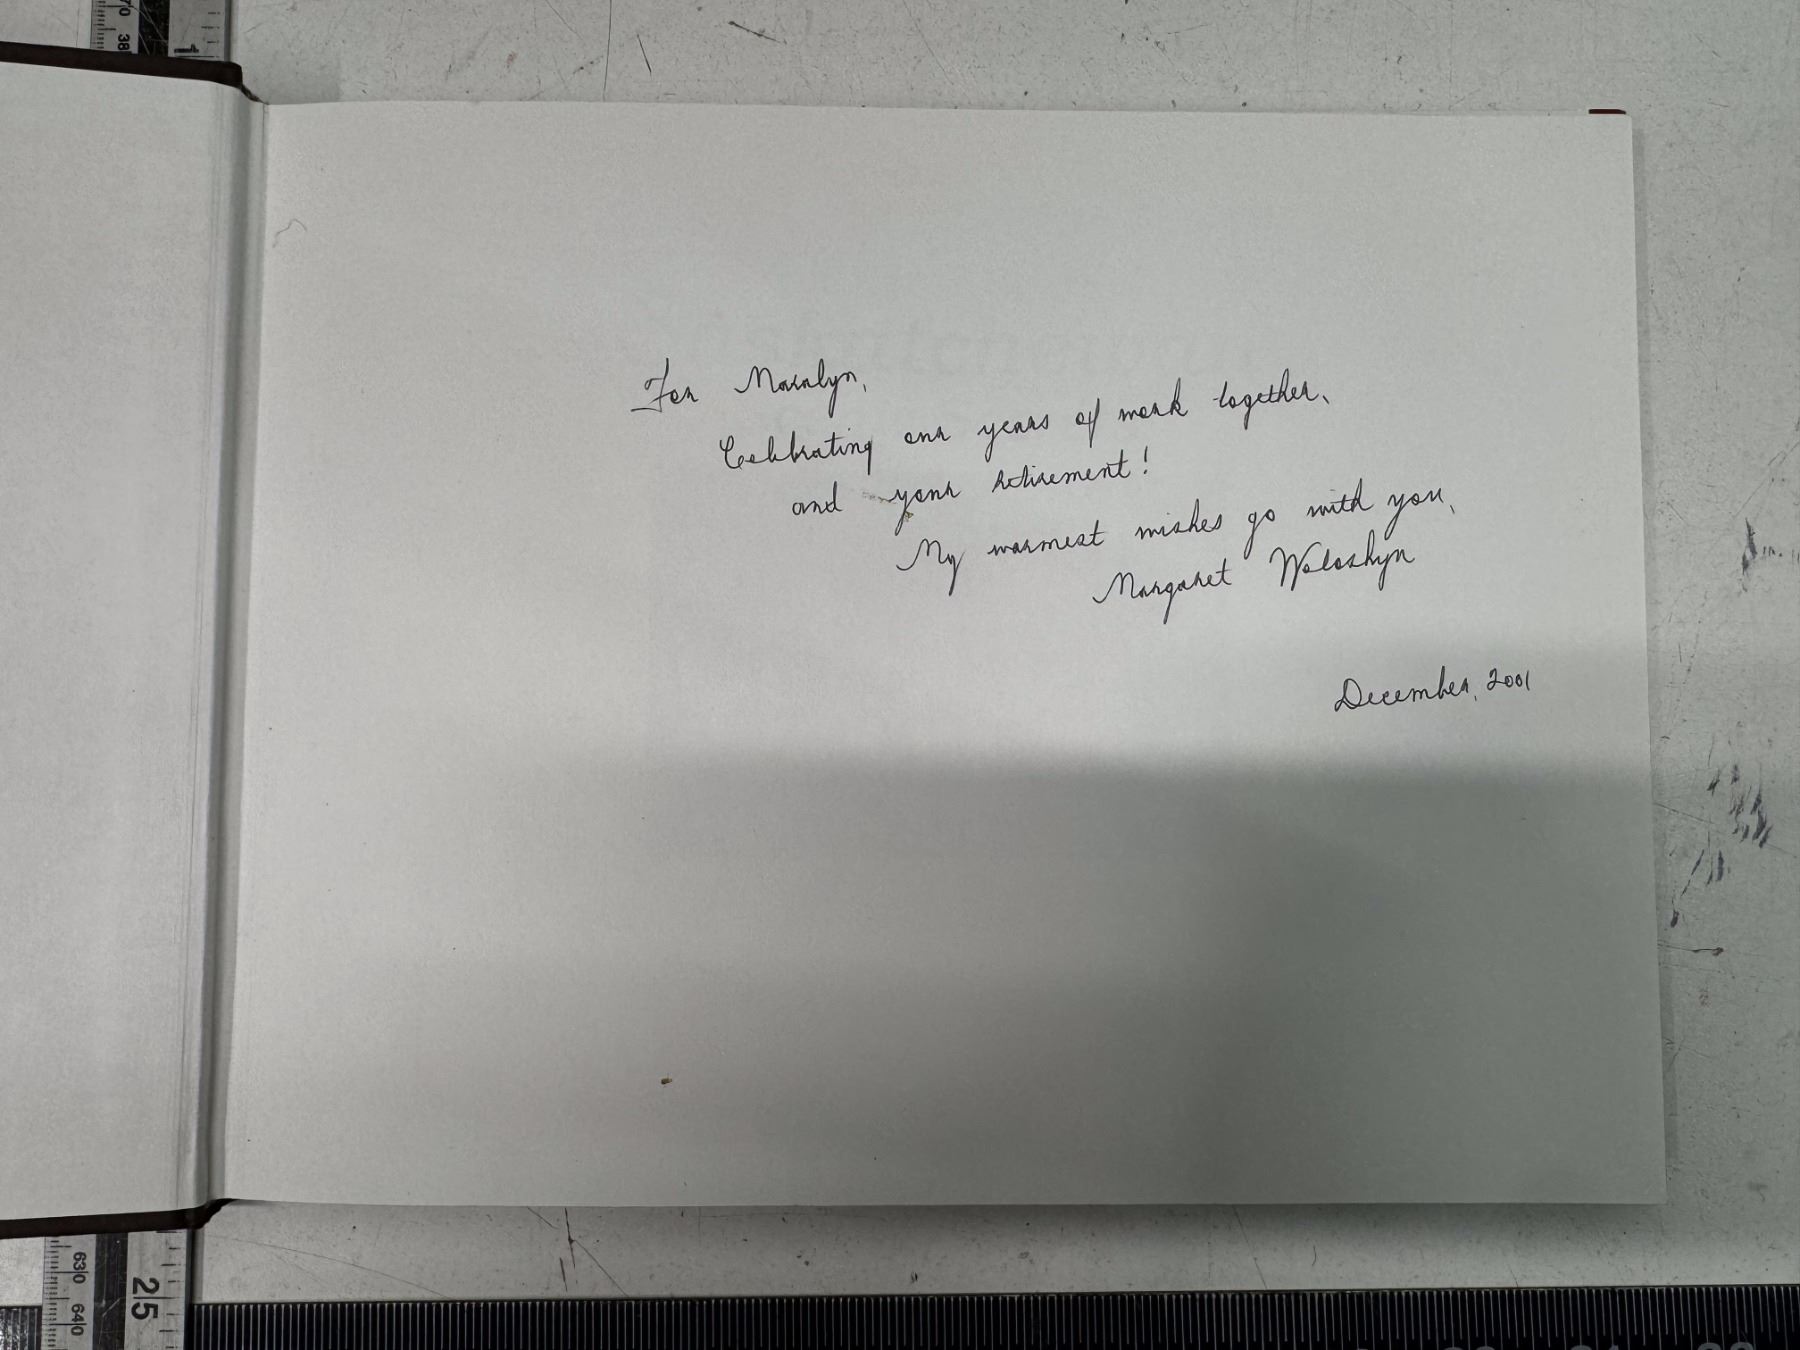 For Maralyn,
Celebrating our years of work together,
and your retirement!
My warmest wishes go with you,
Margaret Woloshyn
December, 2001
70
38
1
630
640
25